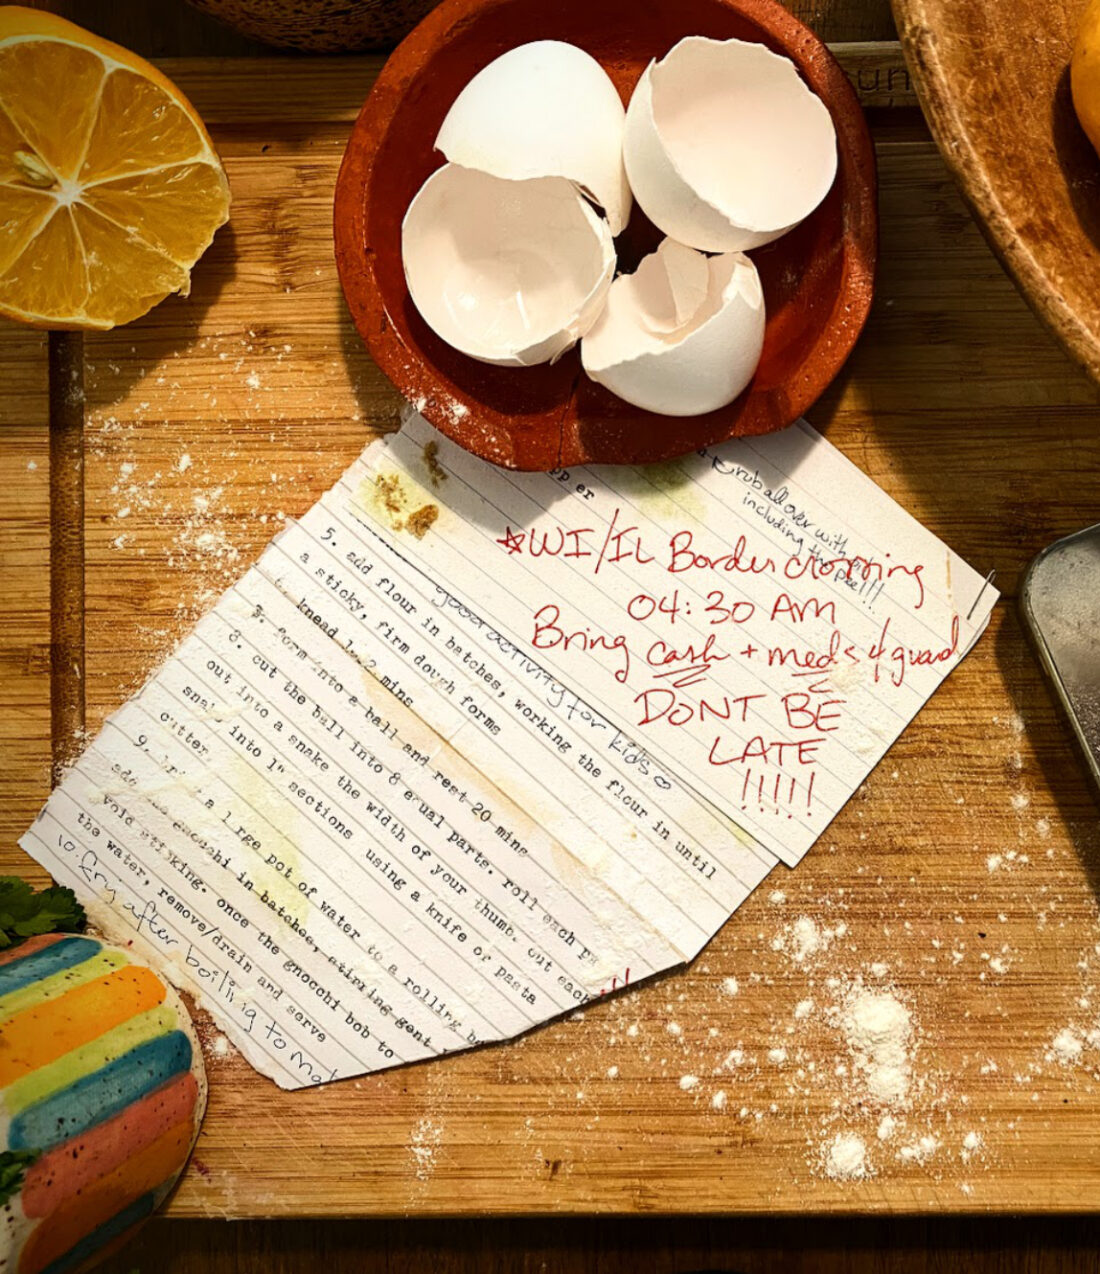 pp er
rub all over with
including the peel!!!
☆WI/IL Border crossing
04:30 AM
Bring cash + meds 4 guard
DONT BE
LATE
!!!!!
good activity for kids ♡
5. add flour in batches, working the flour in until
a sticky, firm dough forms
knead 1-2 mins
form into a ball and rest 20 mins
8. cut the ball into 8 equal parts. roll each
out into a snake the width of your thumb. cut each
snake into 1" sections using a knife or pasta
cutter.
9. a large pot of water to a rolling
add gnocchi in batches, stirring gent
void sticking. once the gnocchi bob to
the water, remove/drain and serve
10. fry after boiling to